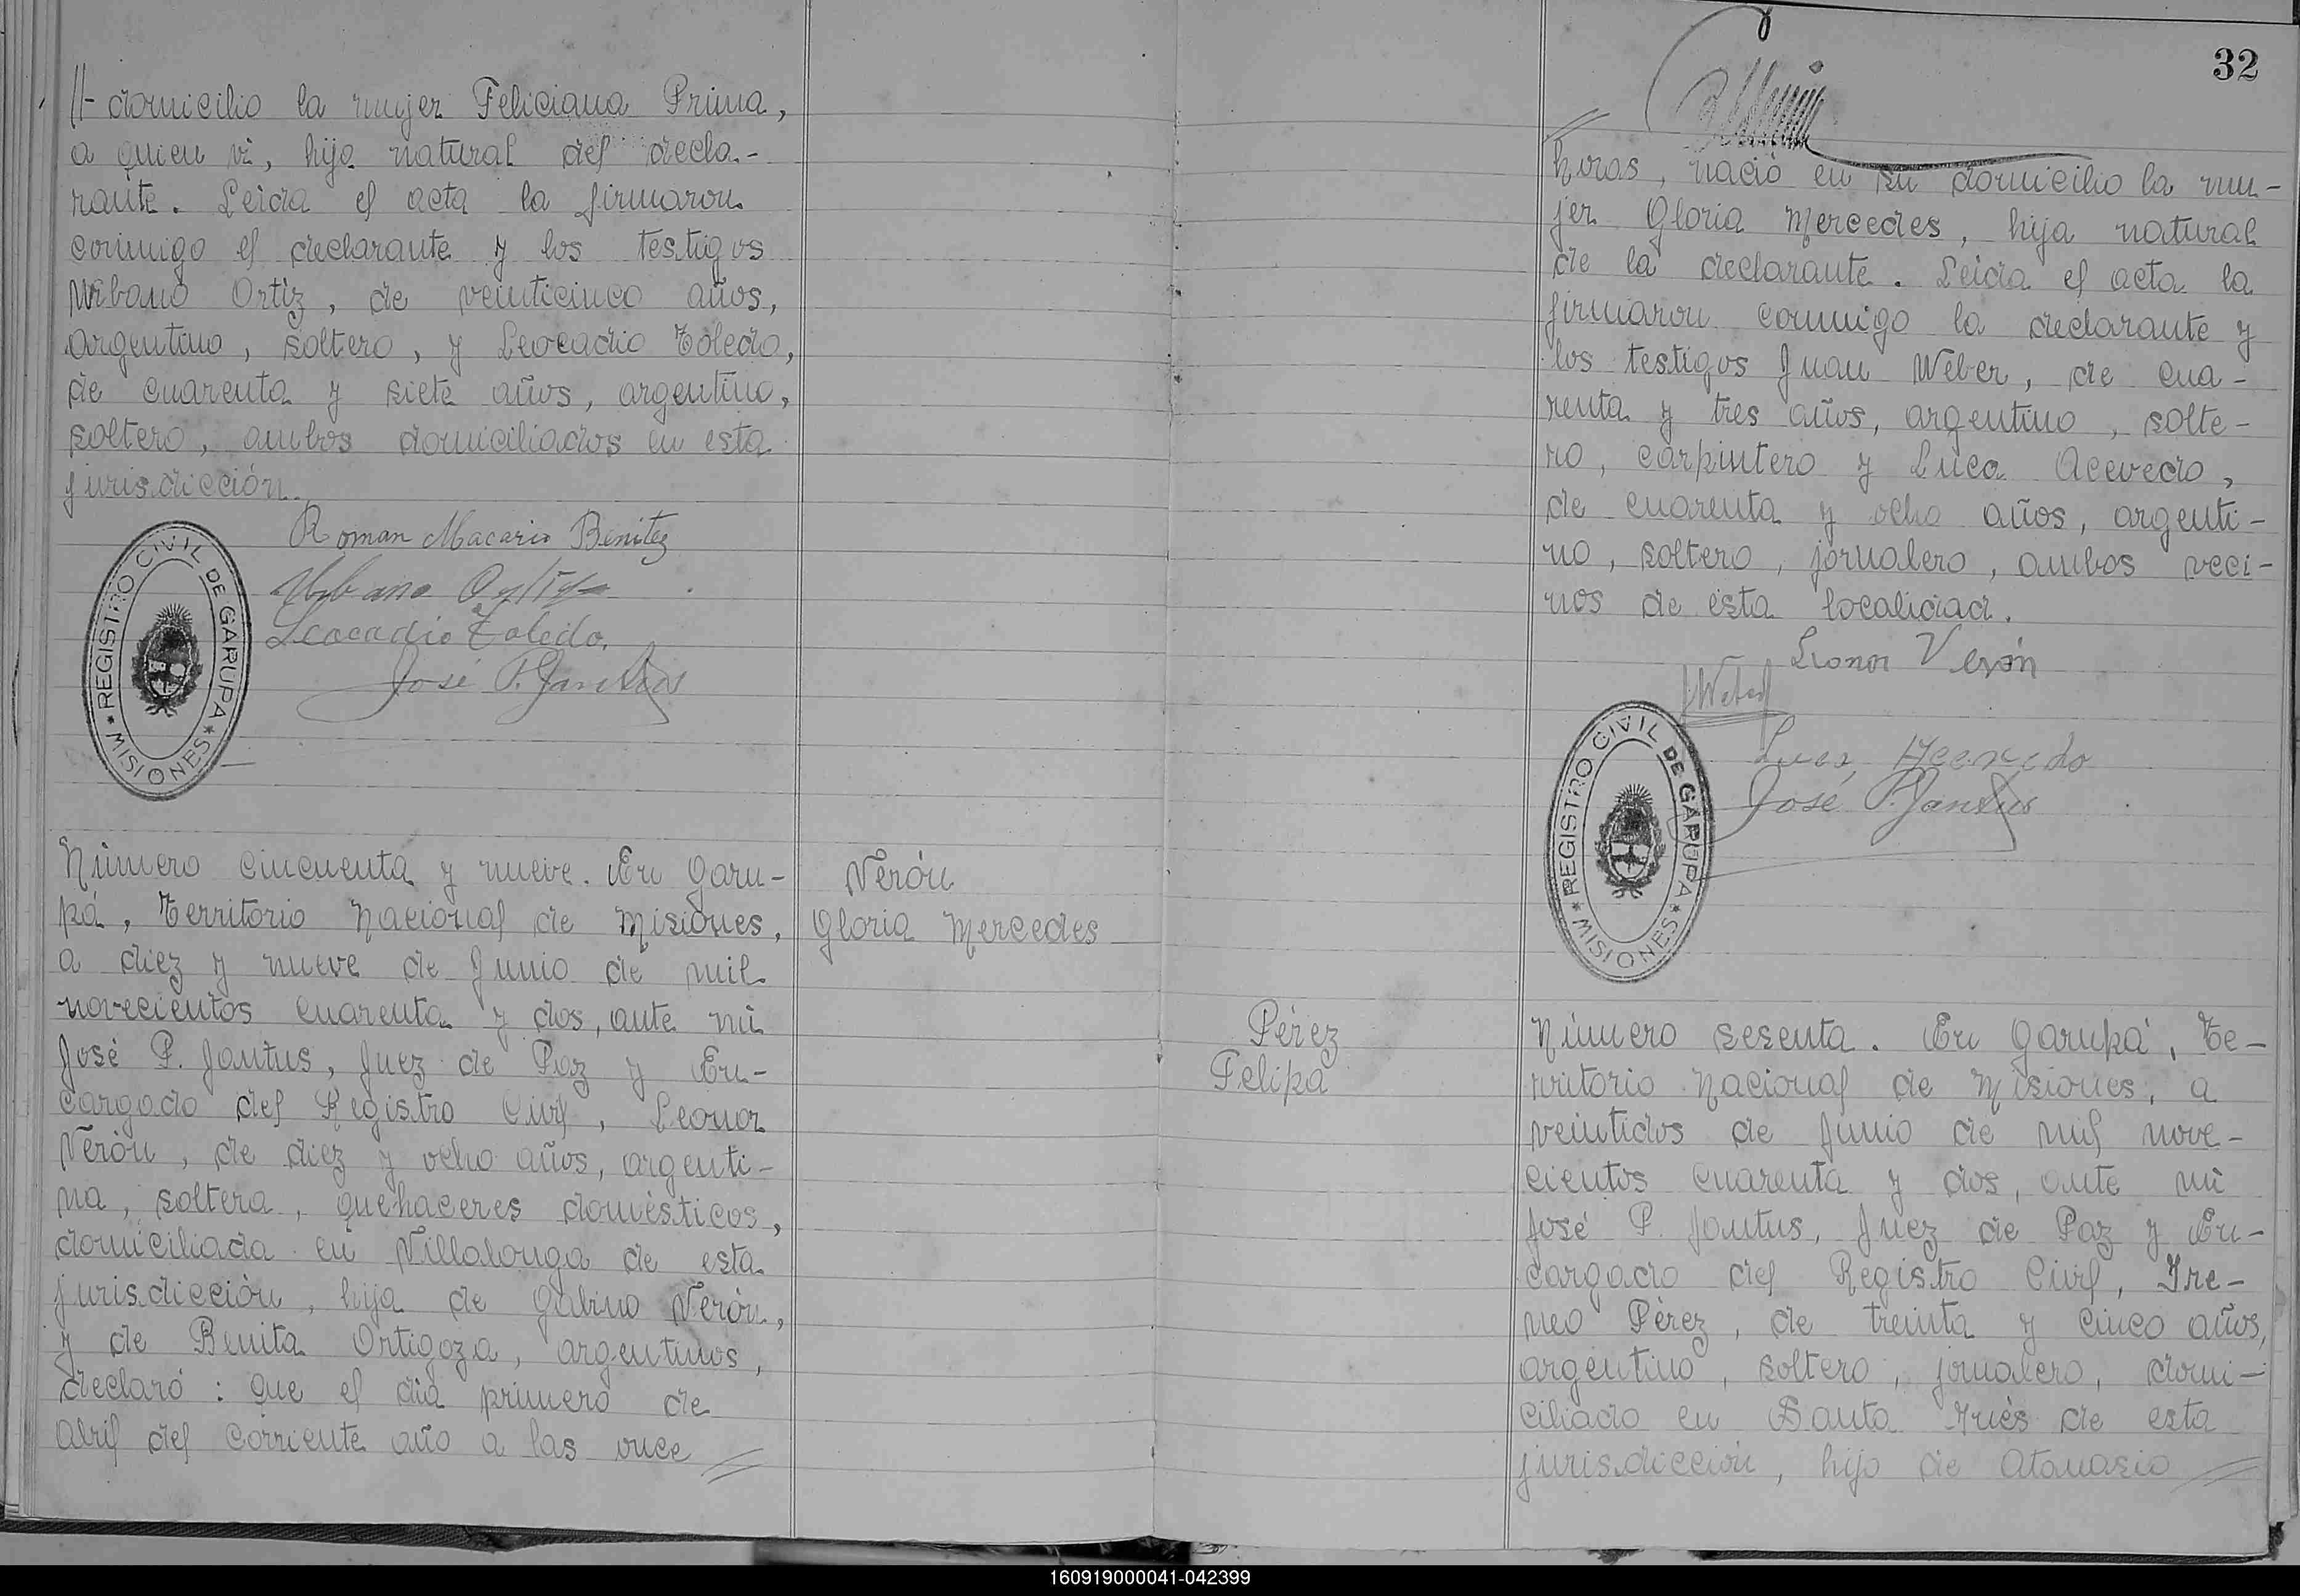 domicilio la mujer Feliciana Prima,
a quien vi, hija natural del decla-
rante. Leida el acta la firmaron
conmigo el declarante y los testigos
Urbano Ortiz, de veinticinco años,
argentino, soltero, y Leocadio Toledo,
de cuarenta y siete años, argentino,
soltero, ambos domiciliados en esta
jurisdicción.
Roman Macario Benitez
Urbano Ortiz
Leocadio Toledo.
José P. Jantus
REGISTRO CIVIL DE GARUPA
* MISIONES *
Número cincuenta y nueve. En Garu-
pá, Territorio Nacional de Misiones,
a diez y nueve de Junio de mil
novecientos cuarenta y dos, ante mi
José P. Jantus, Juez de Paz y En-
cargado del Registro Civil, Leonor
Verón, de diez y ocho años, argenti-
na, soltera, quehaceres domésticos,
domiciliada en Villalonga de esta
jurisdicción, hija de Gabino Verón,
y de Benita Ortigoza, argentinos,
declaró: Que el dia primero de
Abril del corriente año a las once
Verón
Gloria Mercedes
32
horas, nació en su domicilio la mu-
jer Gloria Mercedes, hija natural
de la declarante. Leida el acta la
firmaron conmigo la declarante y
los testigos Juan Weber, de cua-
renta y tres años, argentino, solte-
ro, carpintero y Luca Acevedo,
de cuarenta y ocho años, argenti-
no, soltero, jornalero, ambos veci-
nos de esta localidad.
Leonor Verón
J Weber
Luca Acevedo
José P. Jantus
REGISTRO CIVIL DE GARUPA
* MISIONES *
Pérez
Felipa
Número sesenta. En Garupá, Te-
rritorio Nacional de Misiones, a
veintidos de Junio de mil nove-
cientos cuarenta y dos, ante mi
José P. Jantus, Juez de Paz y En-
cargado del Registro Civil, Ire-
neo Pérez, de treinta y cinco años,
argentino, soltero, jornalero, domi-
ciliado en Santa Inés de esta
jurisdicción, hijo de Atanasio
160919000041-042399